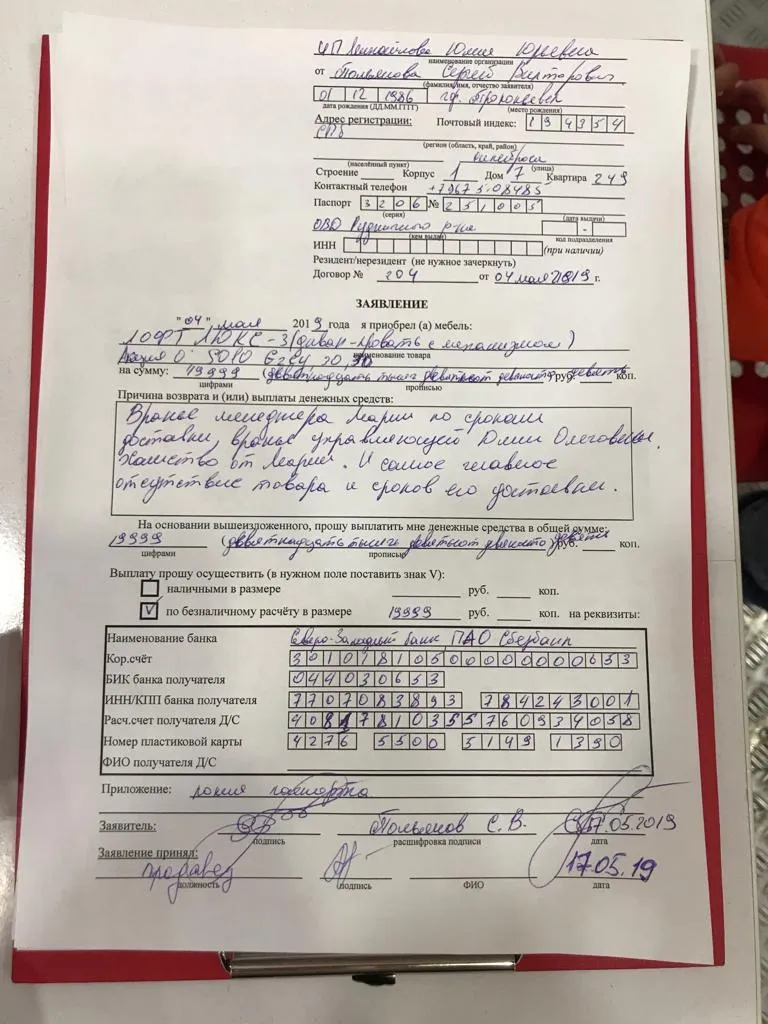 ИП Юлия Юрьевна
наименование организации
от Польякова Сергей Викторович
(фамилия, имя, отчество заявителя)
01 12 1986 гор. Прокопьевск
дата рождения (ДД.ММ.ГГГГ) (место рождения)
Адрес регистрации: Почтовый индекс: 194354
СПб
(регион (область, край, район)
(населённый пункт) (улица)
Строение Корпус 1 Дом 7 Квартира 249
Контактный телефон +7967508485
Паспорт 3206 № 251005
(серия) (дата выдачи)
ОВД Рудничного р-на -
(кем выдан) код подразделения
ИНН (при наличии)
Резидент/нерезидент (не нужное зачеркнуть)
Договор № 204 от 04 мая 2019 г.
ЗАЯВЛЕНИЕ
"04" мая 2019 года я приобрел (а) мебель:
ЛОФТ ЛЮКС-3 (диван-кровать с механизмом)
Акция
наименование товара
на сумму: 19999 (девятнадцать тысяч девятьсот девяносто девять руб. коп.
цифрами прописью
Причина возврата и (или) выплаты денежных средств:
Вранье менеджера Марии по срокам
доставки, вранье управляющей Юлии Олеговны.
Хамство от Марии. И самое главное
отсутствие товара и сроков его доставки.
На основании вышеизложенного, прошу выплатить мне денежные средства в общей сумме:
19999 (девятнадцать тысяч девятьсот девяносто девять руб. коп.
цифрами прописью
Выплату прошу осуществить (в нужном поле поставить знак V):
наличными в размере руб. коп.
V по безналичному расчёту в размере 19999 руб. коп. на реквизиты:
Наименование банка Северо-Западный банк ПАО Сбербанк
Кор.счёт 30101810500000000653
БИК банка получателя 044030653
ИНН/КПП банка получателя 7707083893 784243001
Расч.счет получателя Д/С 40817810355760934058
Номер пластиковой карты 4276 5500 5149 1390
ФИО получателя Д/С
Приложение: копия паспорта
Заявитель: Польяков С. В. 17.05.2019
подпись расшифровка подписи дата
Заявление принял:
продавец 17.05.19
должность подпись ФИО дата